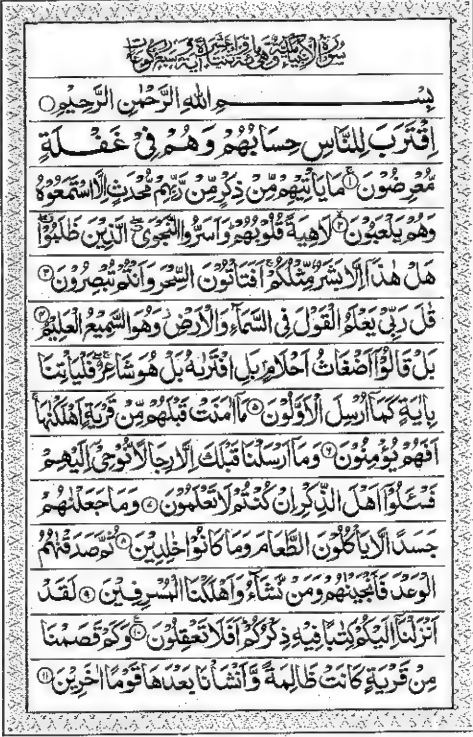 سُوْرَةُ الْاَنْبِيَآءِ مَكِّيَّةٌ وَّهِيَ مِائَةٌ وَّاثْنَتَا عَشْرَةَ اٰيَةً وَّسَبْعُ رُكُوْعَاتٍ
بِسْــــــــمِ اللهِ الرَّحْمٰنِ الرَّحِيْمِ
اِقْتَرَبَ لِلنَّاسِ حِسَابُهُمْ وَهُمْ فِيْ غَفْلَةٍ
مُّعْرِضُوْنَ ۱ مَا يَاْتِيْهِمْ مِّنْ ذِكْرٍ مِّنْ رَّبِّهِمْ مُّحْدَثٍ اِلَّا اسْتَمَعُوْهُ
وَهُمْ يَلْعَبُوْنَ ۲ لَاهِيَةً قُلُوْبُهُمْ وَاَسَرُّوا النَّجْوَى الَّذِيْنَ ظَلَمُوْا
هَلْ هٰذَآ اِلَّا بَشَرٌ مِّثْلُكُمْ اَفَتَاْتُوْنَ السِّحْرَ وَاَنْتُمْ تُبْصِرُوْنَ ۳
قٰلَ رَبِّيْ يَعْلَمُ الْقَوْلَ فِي السَّمَآءِ وَالْاَرْضِ وَهُوَ السَّمِيْعُ الْعَلِيْمُ ۴
بَلْ قَالُوْٓا اَضْغَاثُ اَحْلَامٍ بَلِ افْتَرٰىهُ بَلْ هُوَ شَاعِرٌ فَلْيَاْتِنَا
بِاٰيَةٍ كَمَآ اُرْسِلَ الْاَوَّلُوْنَ ۵ مَآ اٰمَنَتْ قَبْلَهُمْ مِّنْ قَرْيَةٍ اَهْلَكْنٰهَا
اَفَهُمْ يُؤْمِنُوْنَ ۶ وَمَآ اَرْسَلْنَا قَبْلَكَ اِلَّا رِجَالًا نُّوْحِيْٓ اِلَيْهِمْ
فَسْـَٔلُوْٓا اَهْلَ الذِّكْرِ اِنْ كُنْتُمْ لَا تَعْلَمُوْنَ ۷ وَمَا جَعَلْنٰهُمْ
جَسَدًا لَّا يَاْكُلُوْنَ الطَّعَامَ وَمَا كَانُوْا خٰلِدِيْنَ ۸ ثُمَّ صَدَقْنٰهُمُ
الْوَعْدَ فَاَنْجَيْنٰهُمْ وَمَنْ نَّشَآءُ وَاَهْلَكْنَا الْمُسْرِفِيْنَ ۹ لَقَدْ
اَنْزَلْنَآ اِلَيْكُمْ كِتٰبًا فِيْهِ ذِكْرُكُمْ اَفَلَا تَعْقِلُوْنَ ۱۰ وَكَمْ قَصَمْنَا
مِنْ قَرْيَةٍ كَانَتْ ظَالِمَةً وَّاَنْشَاْنَا بَعْدَهَا قَوْمًا اٰخَرِيْنَ ۱۱